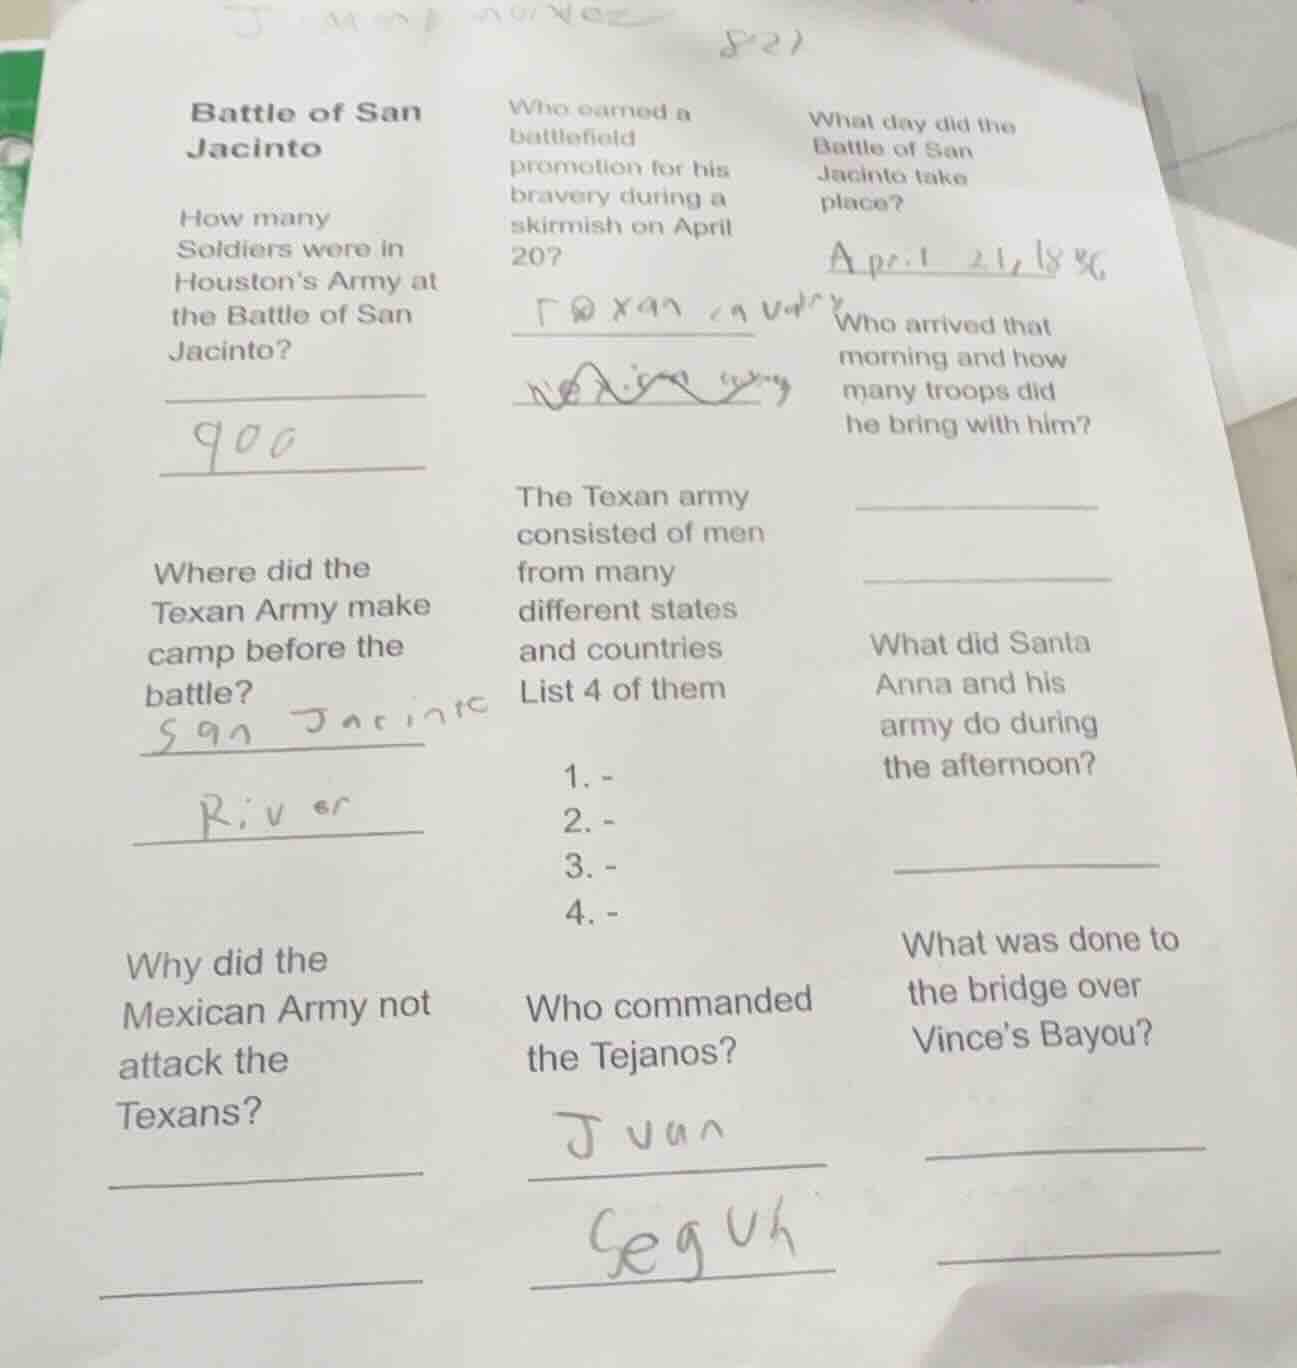 827
Battle of San
Jacinto
How many
Soldiers were in
Houston's Army at
the Battle of San
Jacinto?
900
Where did the
Texan Army make
camp before the
battle?
San Jacinto
River
Why did the
Mexican Army not
attack the
Texans?
Who earned a
battlefield
promotion for his
bravery during a
skirmish on April
20?
Texan cavalry
The Texan army
consisted of men
from many
different states
and countries
List 4 of them
1. -
2. -
3. -
4. -
Who commanded
the Tejanos?
Juan
What day did the
Battle of San
Jacinto take
place?
April 21, 1836
Who arrived that
morning and how
many troops did
he bring with him?
What did Santa
Anna and his
army do during
the afternoon?
What was done to
the bridge over
Vince's Bayou?